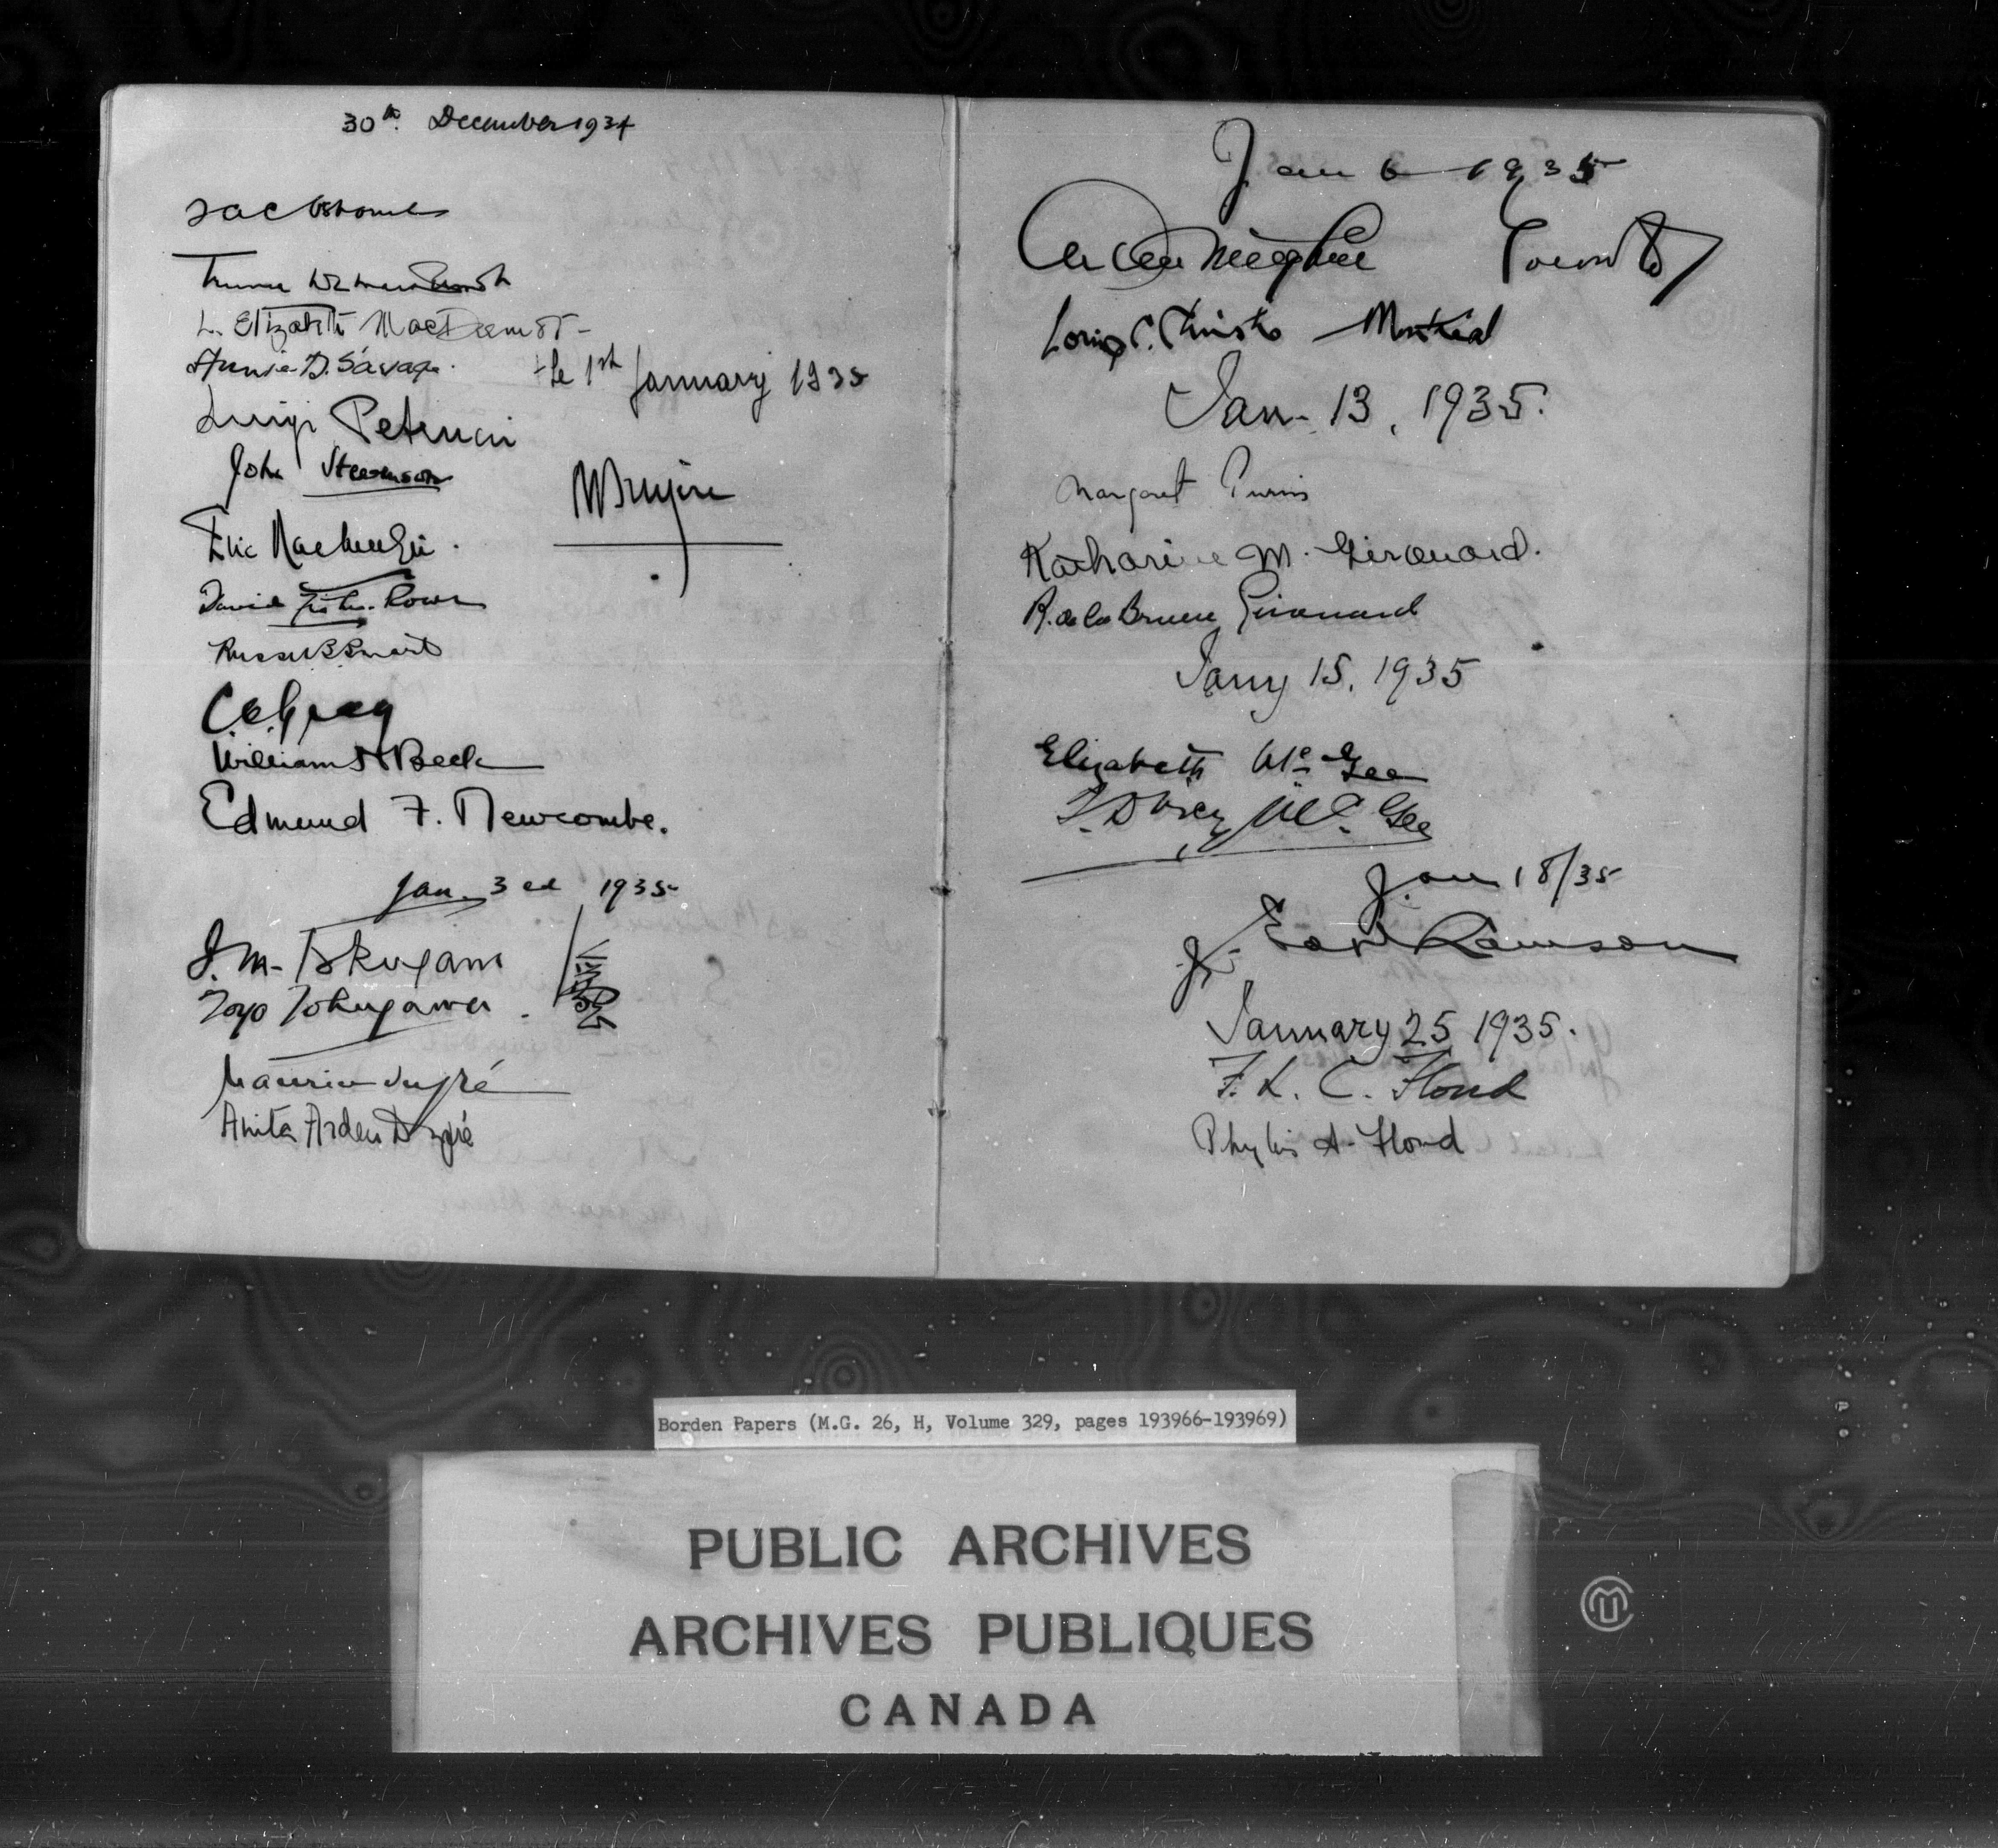 30th. December 1934
L. Elizabeth MacDermot-
Annie D. Savage.
Le 1st January 1935
Luigi Petrucci
John Stevenson
WBruyère
Eric Mackenzie.
David
Russel S Smart
William H Beck
Edmund F. Newcombe.
Jan. 3rd 1935
I. M. Tokugawa
Toyo Tokugawa.
Maurice Dupré
Anita Arden Dupré
Jan 6 1935
Arthur Meighen Toronto
Loring C. Christie Montreal
Jan. 13, 1935.
Margaret Purvis
Katharine M. Girouard.
R. de la Bruere Girouard
Jany 15, 1935
Elizabeth McGee
McGee
Jan 18/35
J. Earl Lawson
January 25 1935.
F. L. C. Floud
Phyllis A. Floud
Borden Papers (M.G. 26, H, Volume 329, pages 193966-193969)
PUBLIC ARCHIVES
ARCHIVES PUBLIQUES
CANADA